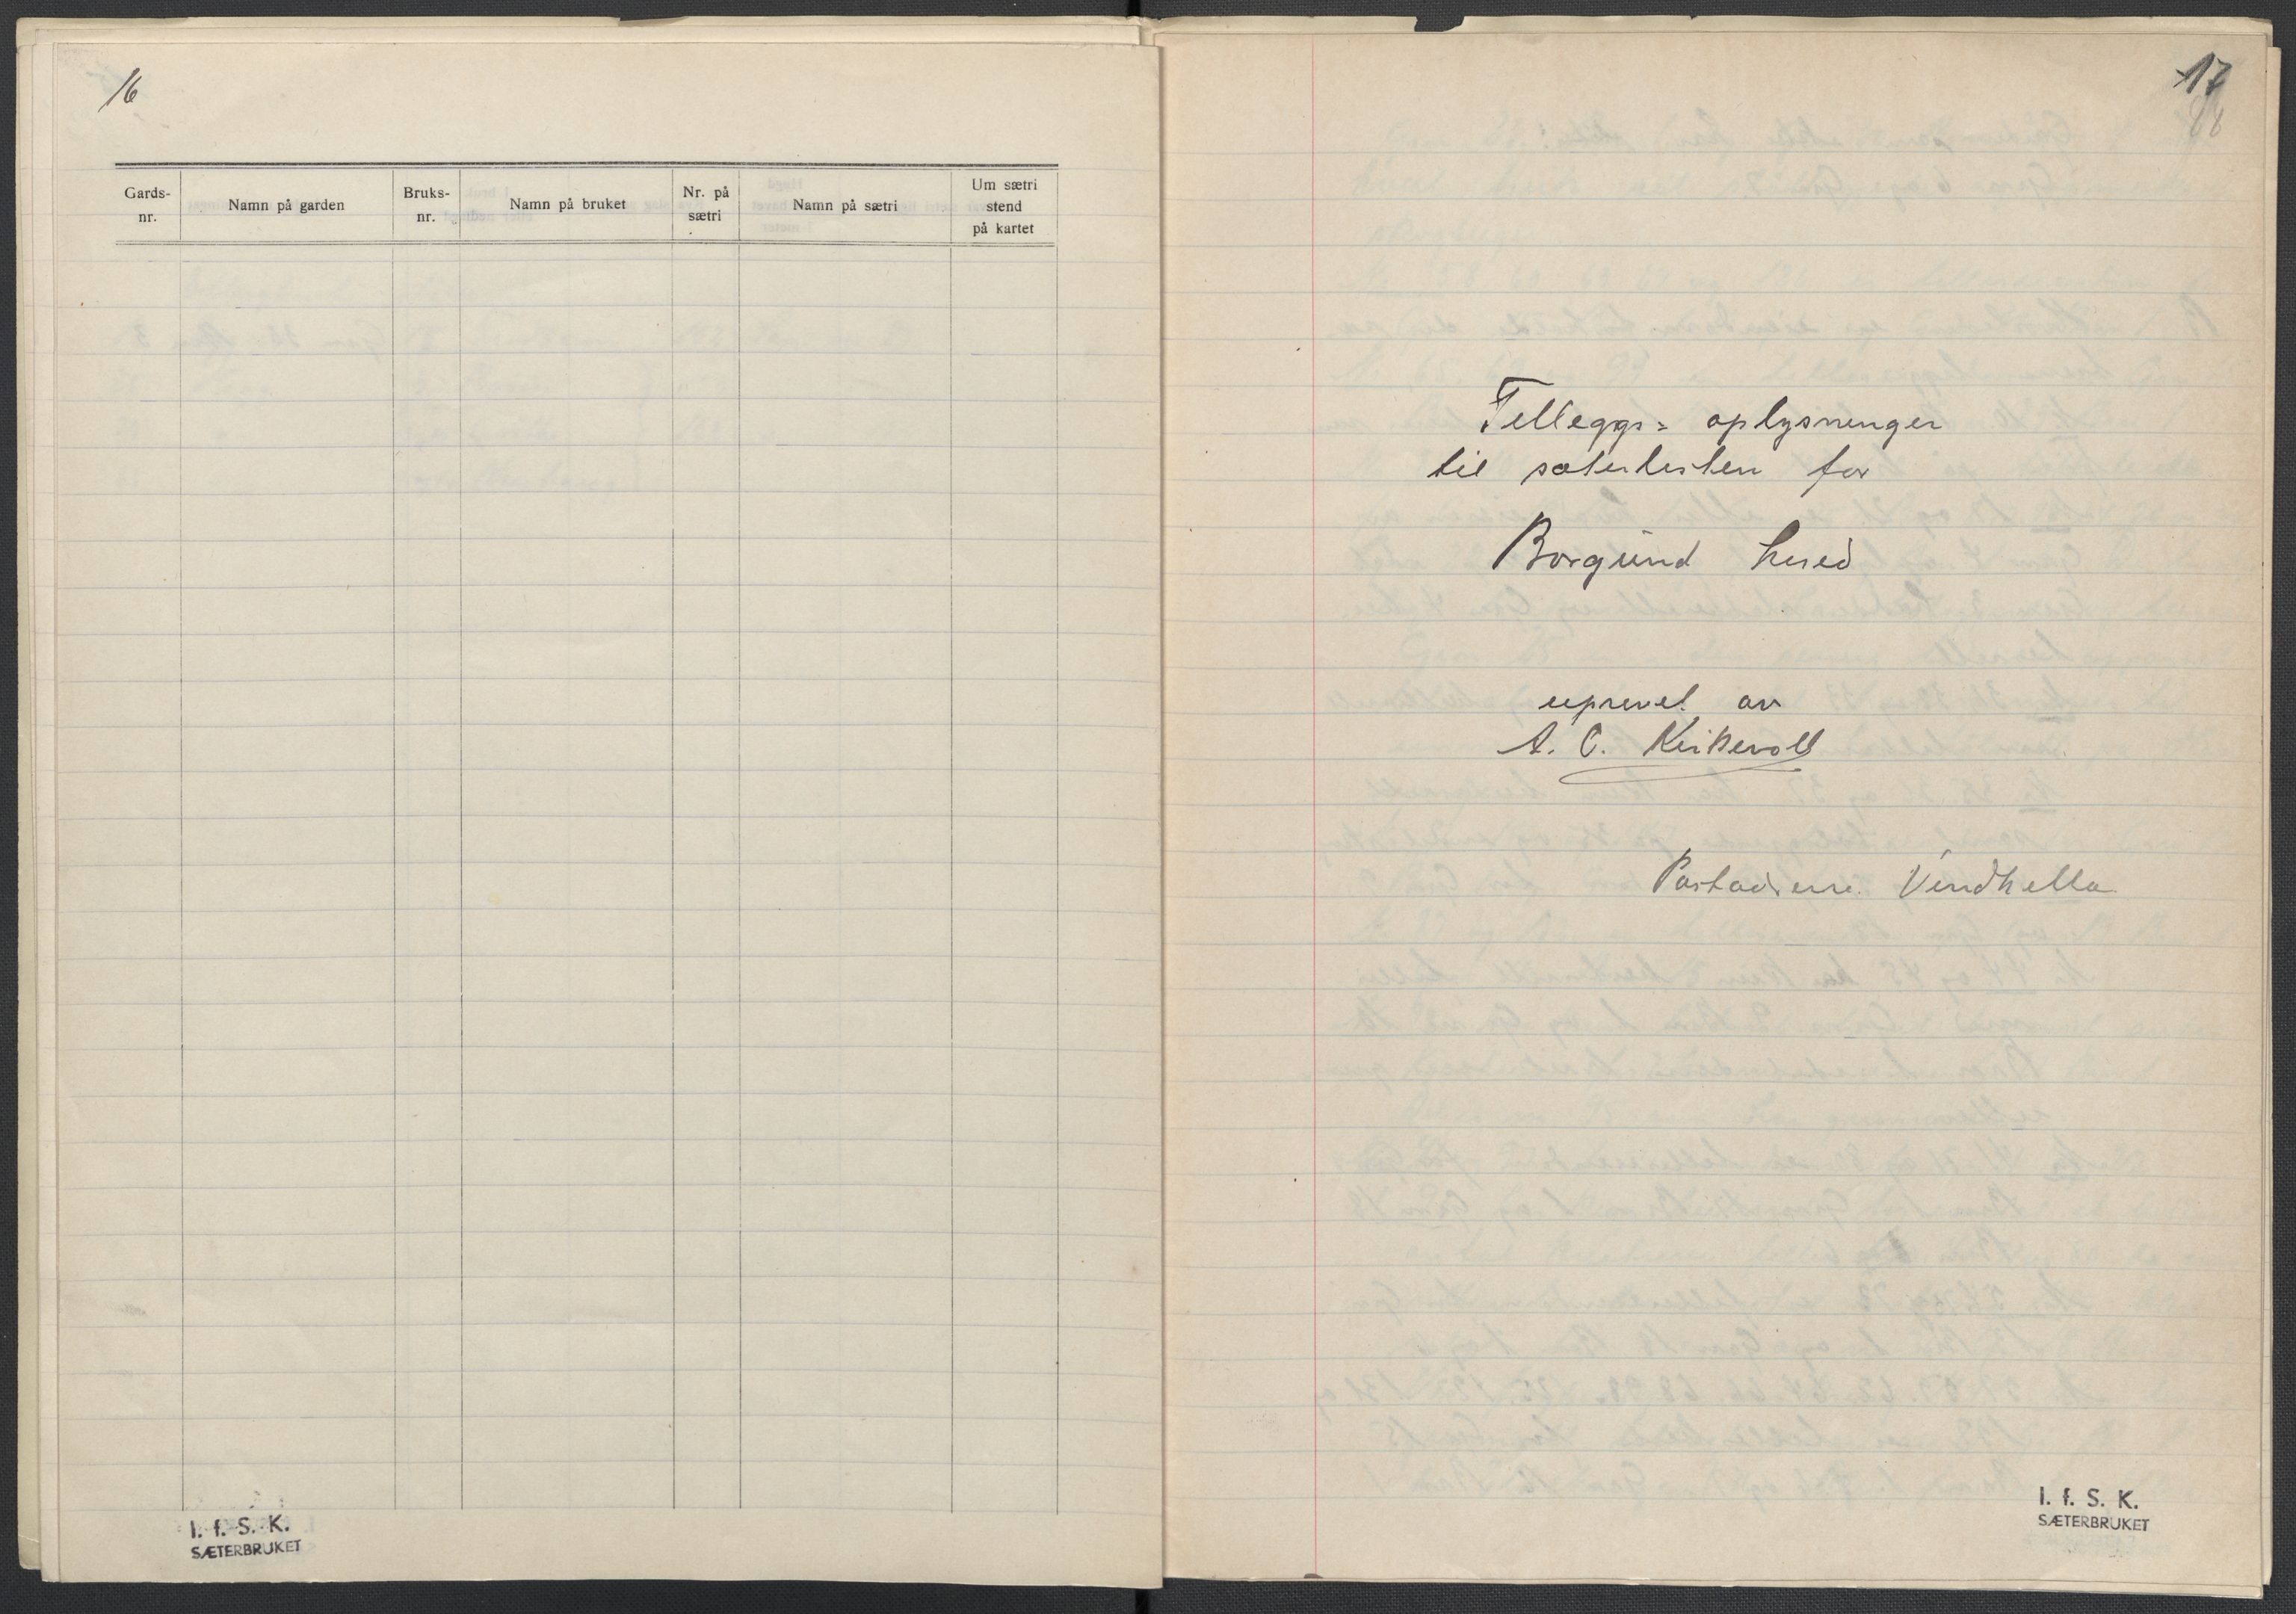 16
Gards-
nr.
Namn på garden
Bruks-
nr.
Namn på bruket
Nr. på
sætri
Namn på sætri
Um sætri
stend
på kartet
I. f. S. K.
SÆTERBRUKET
17
Tilleggs= oplysninger
til sæterlisten for
Borgund herred
utprevet av
A. O. Kirkevoll
Postadresse. Vindhella
I. f. S. K.
SÆTERBRUKET